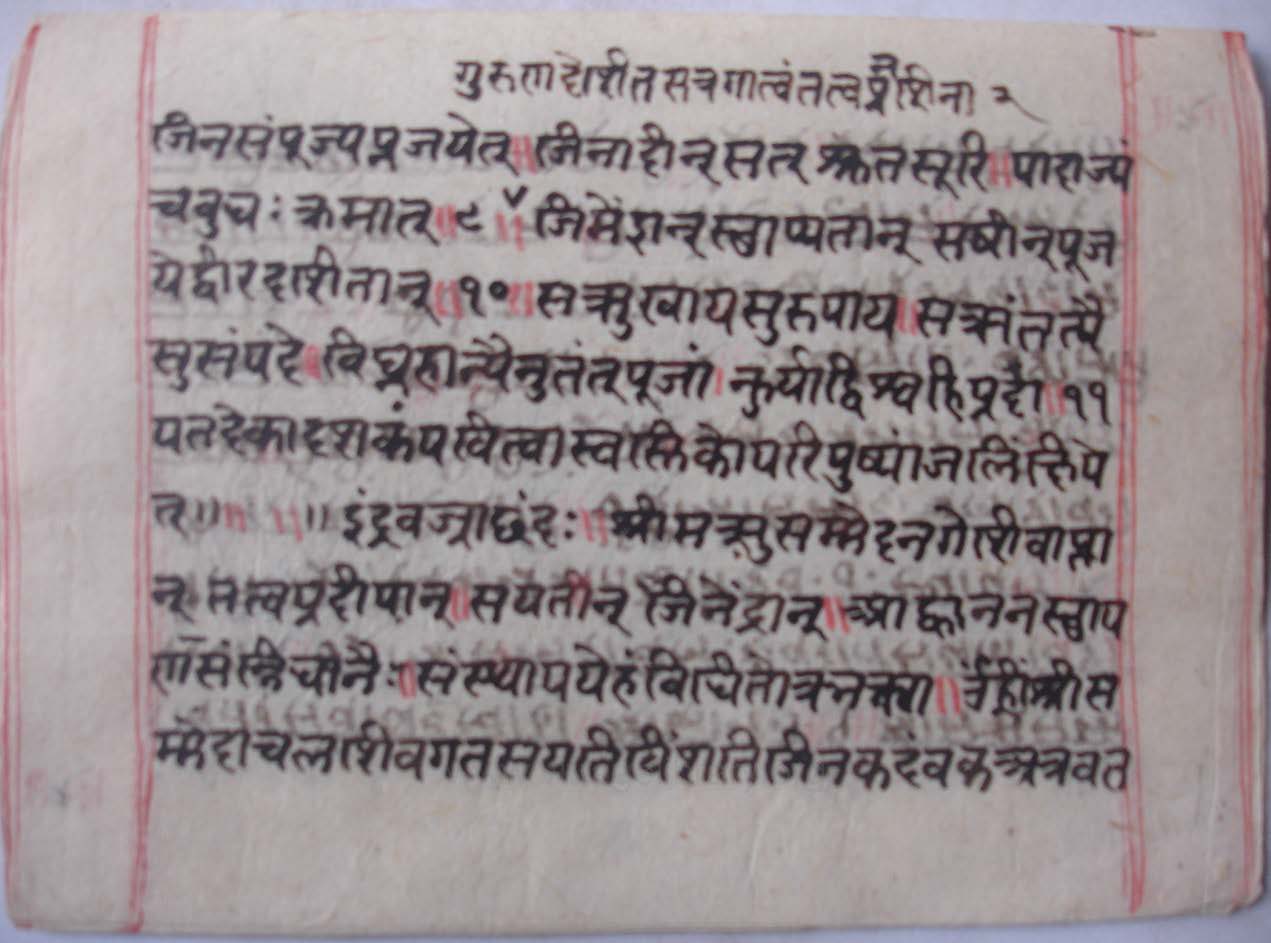 गुरुणादेशीत सचगात्वंतत्वप्रैशिना २
जिनसंपूज्यप्रजयेत्॥जिनादीन्सत् श्रुतसूरि॥पादाज्यं
चबुधः क्रमात्॥९॥ जिमेंद्रान्स्छाप्यतान् सर्षीन्पूज
येद्वीरदाशीतान्॥१०॥सत्सुखायसुरुपाय॥सत्कांतत्यै
सुसंपदे॥विघ्नहान्यैनुतंत्पूजां।कुर्याद्विश्वहिप्रदां॥११
पतदेकादशकंपवित्वास्वस्तिकोपरिपुष्पांजलिंक्षिपे
त्॥॥ ॥॥इंद्रवज्राछंदः॥श्रीमत्सुसम्मेदनगेशीवाप्ता
न् तत्वप्रदीपान्॥सयतीन् जिनेंद्रान्॥आह्वाननस्छाप
णसंन्निधीनैः॥संस्थापयेहं विधितोत्रनक्त्वा॥ॐह्रींश्रीस
म्मेदाचलाशीवगतसयतिविंशतिजिनकदंवकअत्रवत